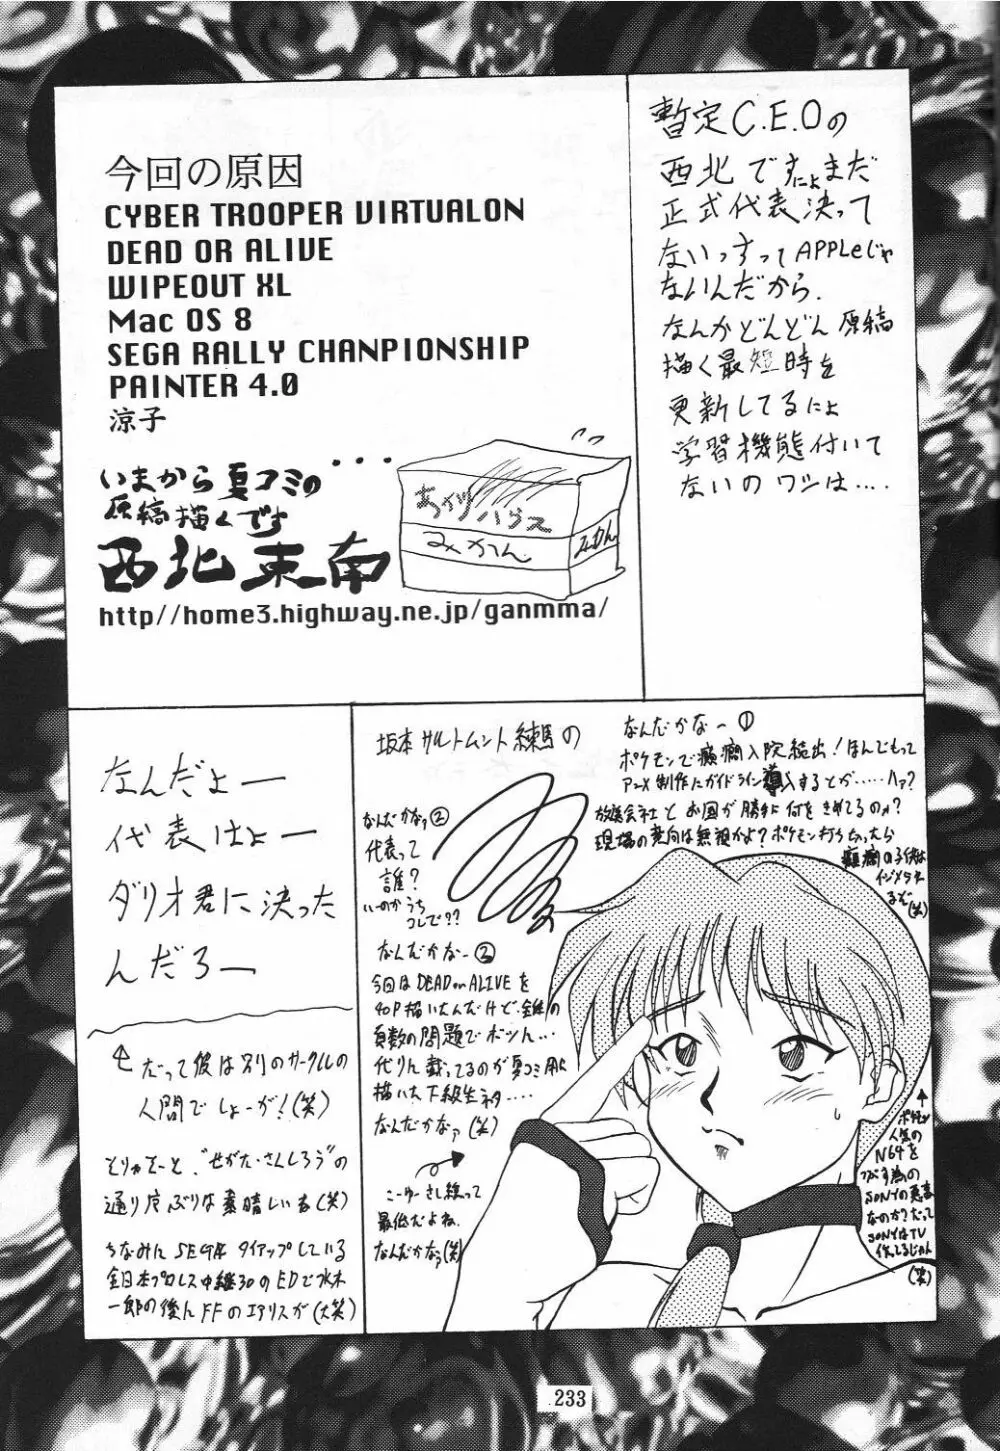 今回の原因
CYBER TROOPER VIRTUALON
DEAD OR ALIVE
WIPEOUT XL
Mac OS 8
SEGA RALLY CHANPIONSHIP
PAINTER 4.0
涼子
いまから夏コミの・・・
原稿描くです
西北東南
http//home3.highway.ne.jp/ganmma/
ハウス
みかん
みかん
暫定C.E.Oの
西北ですにょまだ
正式代表決って
ないっすってAPPLeじゃ
ないんだから.
なんかどんどん原稿
描く最短時を
更新してるによ
学習機態付いて
ないのワシは....
なんだよー
代表はよー
ダリオ君に決った
んだろー
だって彼は別のサークルの
人間でしょーが!(笑)
そりゃそーと"せがた・さんしろう"の
通り度ぶりは素晴しいね(笑)
ちなみにSEGAタイアップしている
全日本プロレス中継30のEDで水木
一郎の後にFFのエアリスが(大笑)
坂本サルトムント練馬の
なんだかなー①
ポケモンで癲癇入院続出!ほんでもって
アニメ制作にガイドライン導入するとか.....ハァ?
放送会社とお国が勝手に何をきめてるのォ?
現場の意向は無視かよ?ポケモン打ちちったら
癲癇の子供は
イジメラレ
るぞ(笑)
なんだかなァ②
代表って
誰?
いーのかうち
コレで??
なんだかなー③
今回はDEAD or ALIVEを
40P描いたんだけど、全体の
頁数の問題でボツに...
代りに載ってるのが夏コミ用に
描いた下級生ネタ....
なんだかなァ(笑)
こーゆーさし絵って
最低だよね.
なんだかなァ(笑)
ポケモン
人気の
N64を
つぶす為の
SONYの陰謀
なのか?だって
SONYはTV
作ってるじゃん
(笑)
233